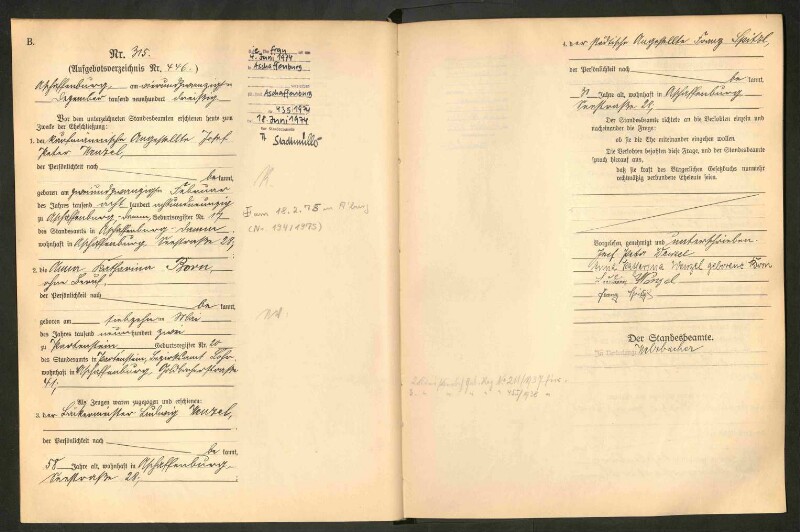 B.
Nr. 315.
(Aufgebotsverzeichnis Nr. 446.)
Aschaffenburg, am vierundzwanzigsten
Dezember tausend neunhundert dreißig
Vor dem unterzeichneten Standesbeamten erschienen heute zum
Zwecke der Eheschließung:
1. der kaufmännische Angestellte Josef
Peter Wenzel,
der Persönlichkeit nach
be kannt,
geboren am zweiundzwanzigsten Februar
des Jahres tausend acht hundert achtundneunzig
zu Aschaffenburg-Damm, Geburtsregister Nr. 17
des Standesamts in Aschaffenburg-Damm,
wohnhaft in Aschaffenburg, Seestraße 28;
2. die Anna Katharina Born,
ohne Beruf,
der Persönlichkeit nach
be kannt,
geboren am siebzehn Mai
des Jahres tausend neunhundert zwei
zu Partenstein, Geburtsregister Nr. 20
des Standesamts in Partenstein, Bezirksamt Lohr,
wohnhaft in Aschaffenburg, Goldbacherstraße
41;
Als Zeugen waren zugezogen und erschienen:
3. der Bäckermeister Ludwig Wenzel,
der Persönlichkeit nach
be kannt,
58 Jahre alt, wohnhaft in Aschaffenburg,
Seestraße 28;
Die Frau
4. Juni 1974
in Aschaffenburg
Aschaffenburg
Nr. 435/1974
18. Juni 1974
Der Standesbeamte
Stadtmüller
am 18.2.75 in A'burg
(No 134/1975)
4. der städtische Angestellte Franz Spitzl,
der Persönlichkeit nach
be kannt,
31 Jahre alt, wohnhaft in Aschaffenburg
Seestraße 28;
Der Standesbeamte richtete an die Verlobten einzeln und
nacheinander die Frage:
ob sie die Ehe miteinander eingehen wollen.
Die Verlobten bejahten diese Frage, und der Standesbeamte
sprach hierauf aus,
daß sie kraft des Bürgerlichen Gesetzbuchs nunmehr
rechtmäßig verbundene Eheleute seien.
Vorgelesen, genehmigt und unterschrieben.
Josef Peter Wenzel
Anna Katharina Wenzel geborene Born
Ludwig Wenzel
Franz Spitzl
Der Standesbeamte.
In Vertretung: